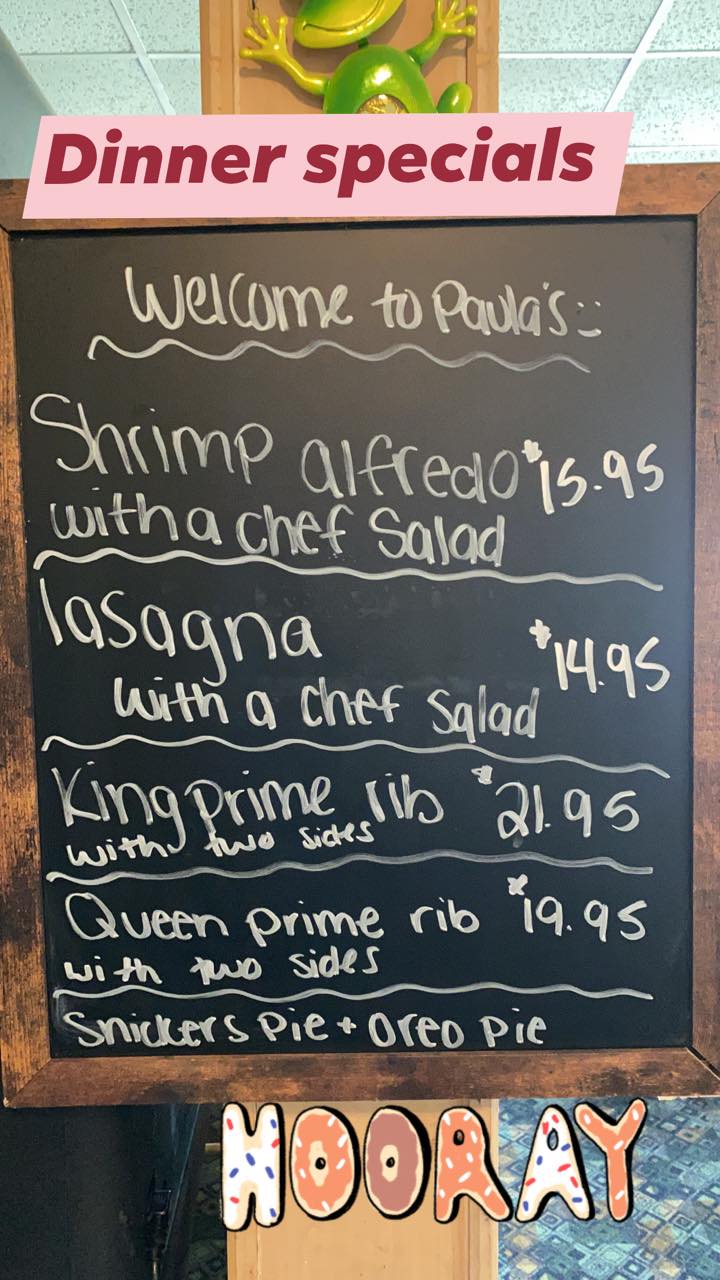 Dinner specials
Welcome to Paula's :)
Shrimp alfredo $15.95
with a chef Salad
lasagna
$14.95
with a chef Salad
King prime rib $21.95
with two sides
Queen prime rib $19.95
with two sides
Snickers Pie + Oreo pie
HOORAY